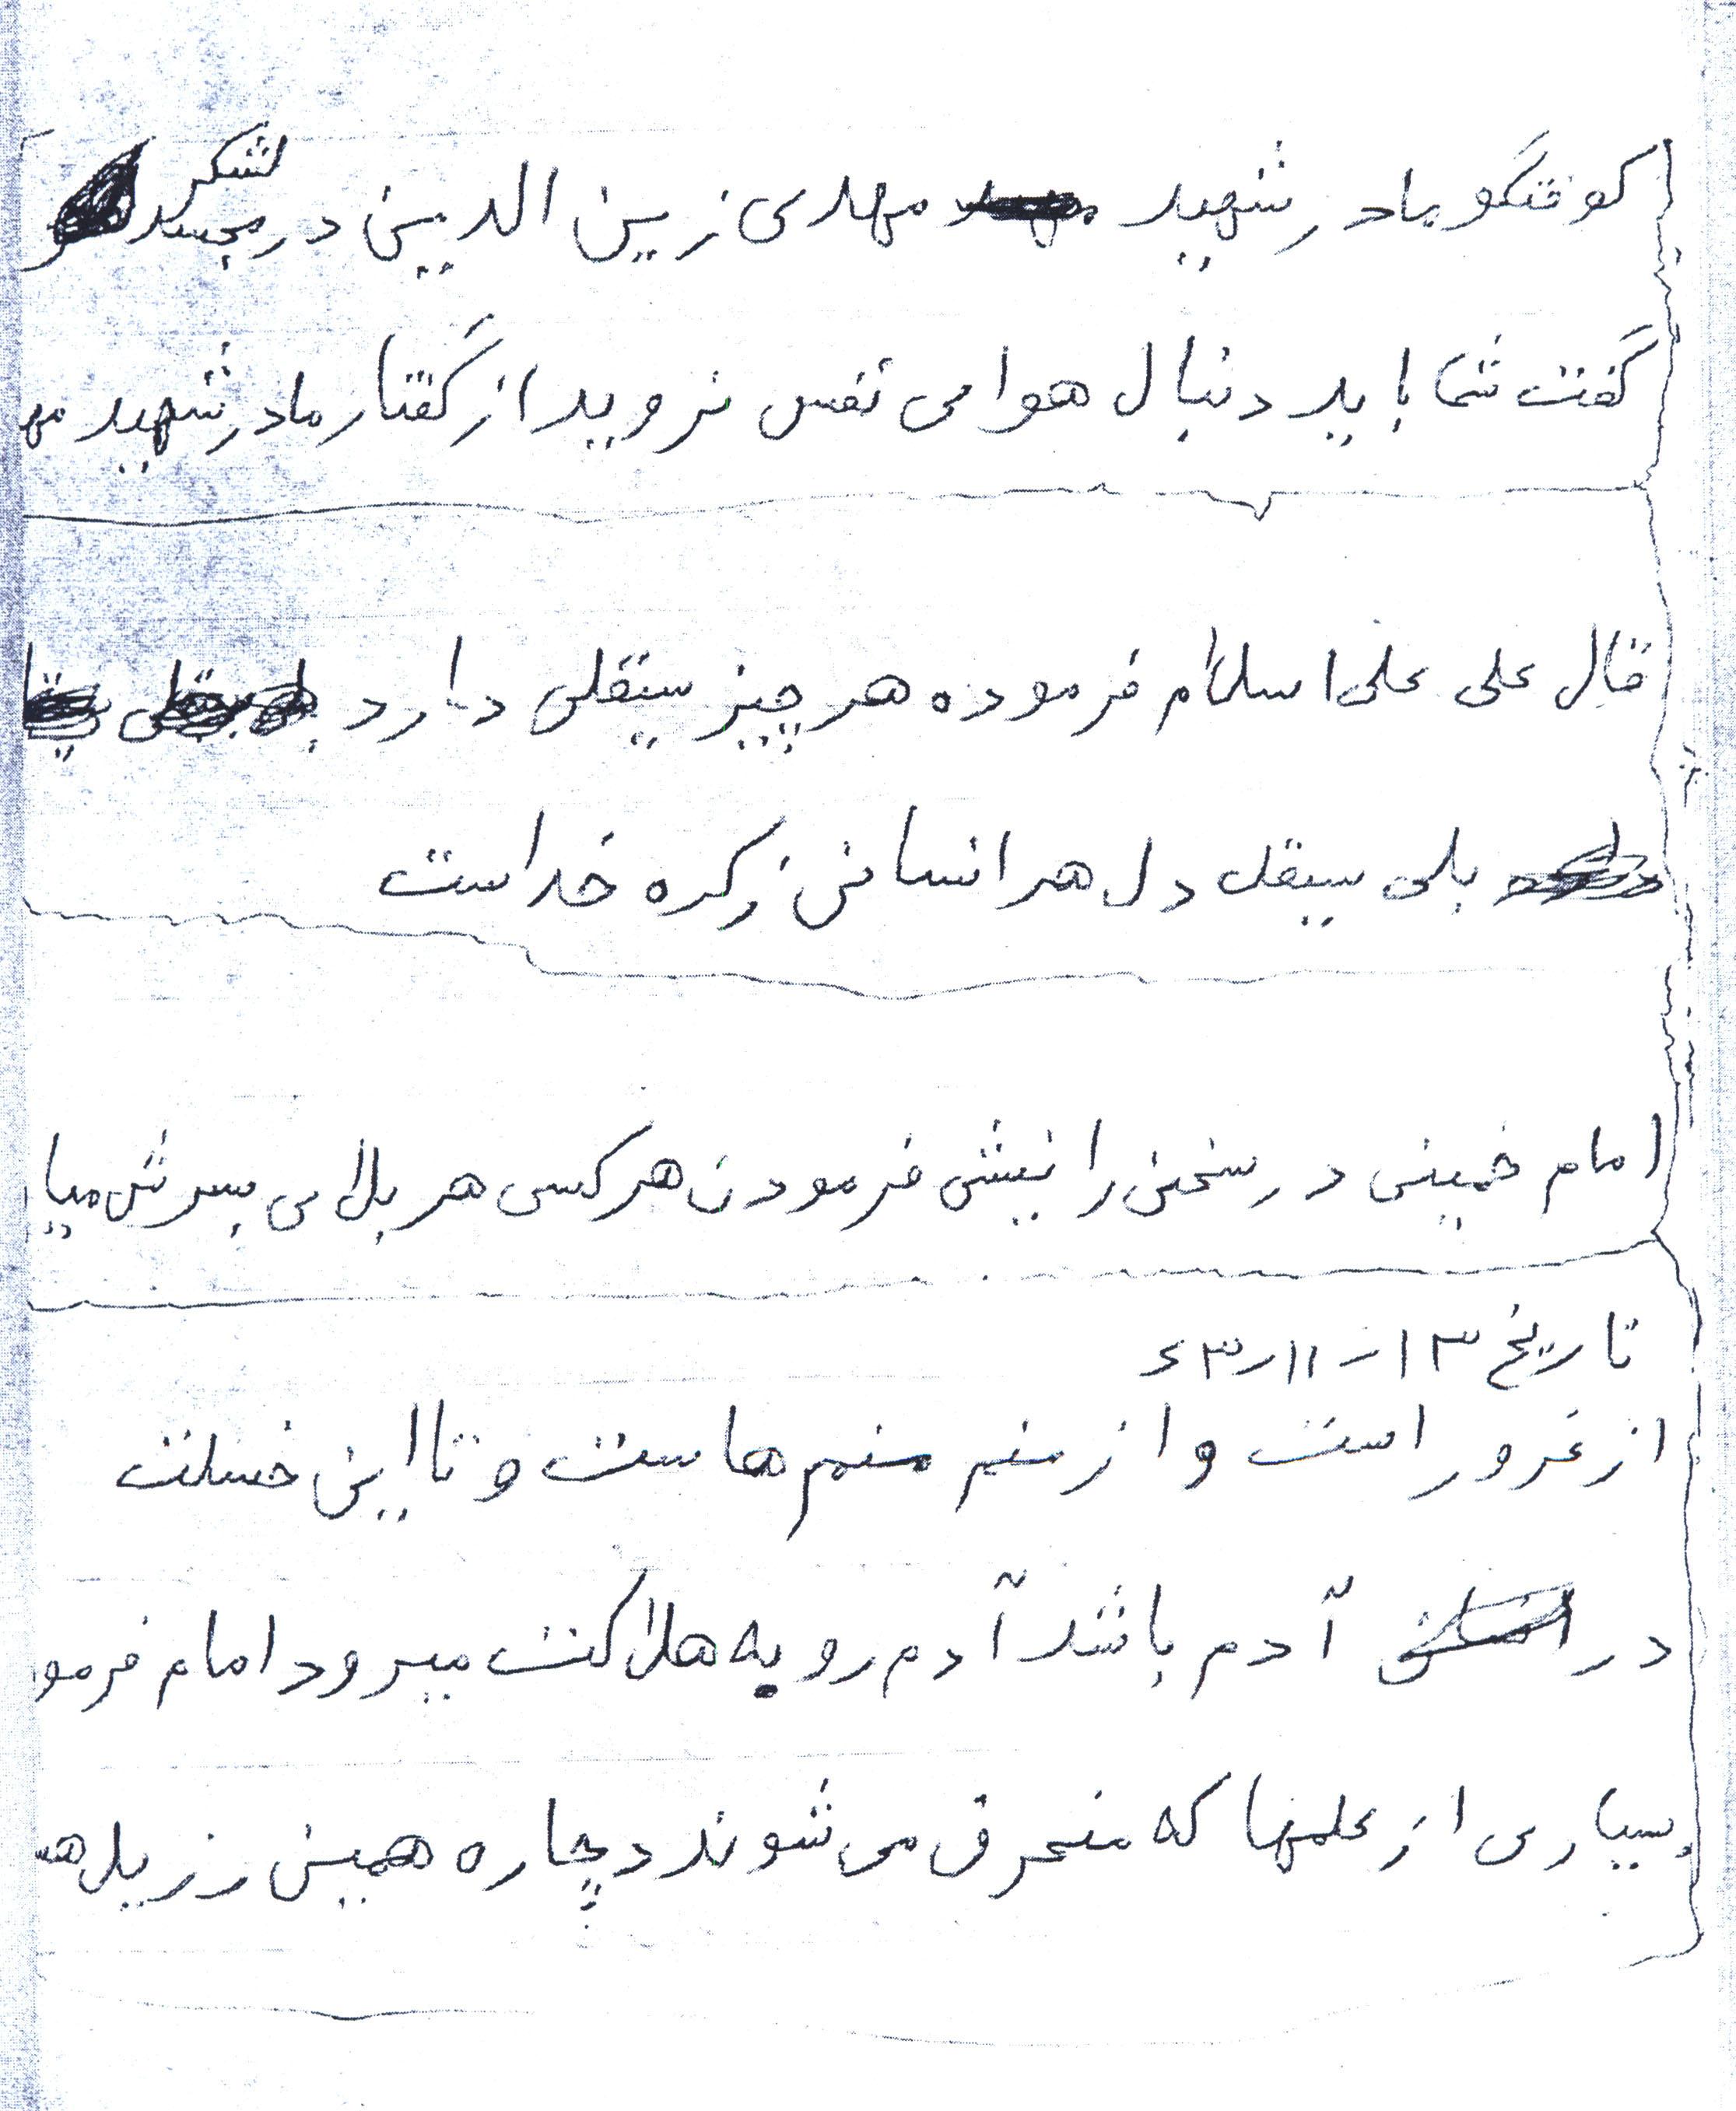 گوفتگو مادر شهید مهدی زین الدین در مجسد لشکر
گفت شما باید دنبال هوامی نفس نروید از گفتار مادر شهید مه
قال علی علی اسلام فرموده هر چیز سیقلی دارد
بلی سیقل دل هر انسانی زکره خداست
امام خمینی در سخن رانیشی فرمودن هر کسی هر بلامی بسرش میا
تاریخ ۱۳-۱۱-۶۳
از غرور است و از منم منم هاست و تا این خسلت
در آدم باشد آدم رو به هلاکت میرود امام فرمو
بسیاری از علمها که منحرف می شوند دچاره همین رزیل ها